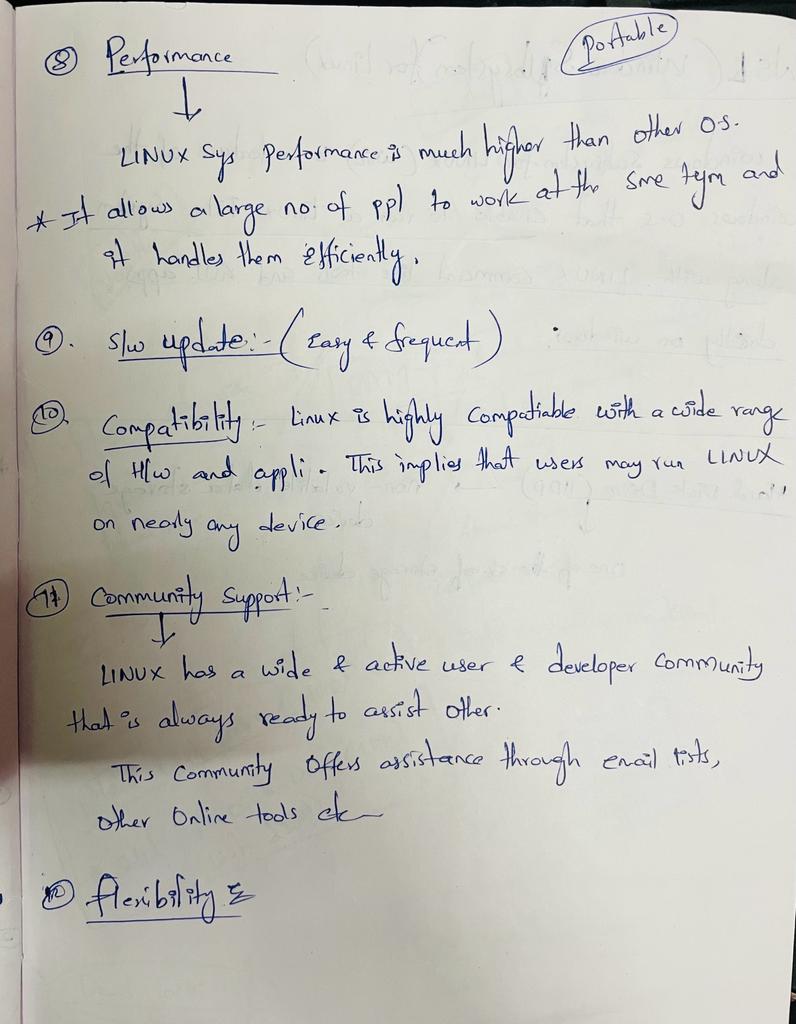 Portable
⑧ Performance
↓
LINUX Sys Performance is much higher than other O.S.
* It allows a large no. of ppl to work at the sme tym and
it handles them efficiently.
⑨. S/w update:- (Easy & frequent)
⑩. Compatibility:- Linux is highly Compatiable with a wide range
of H/w and appli. This implies that users may run LINUX
on nearly any device.
⑪ Community Support:-
↓
LINUX has a wide & active user & developer Community
that is always ready to assist other.
This Community Offers assistance through email lists,
other Online tools etc
⑫ flexibility